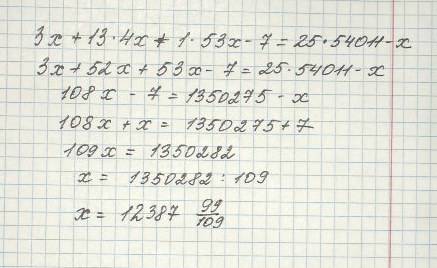 3x + 13·4x + 1·53x - 7 = 25·54011 - x
3x + 52x + 53x - 7 = 25·54011 - x
108x - 7 = 1350275 - x
108x + x = 1350275 + 7
109x = 1350282
x = 1350282 : 109
x = 12387 99/109